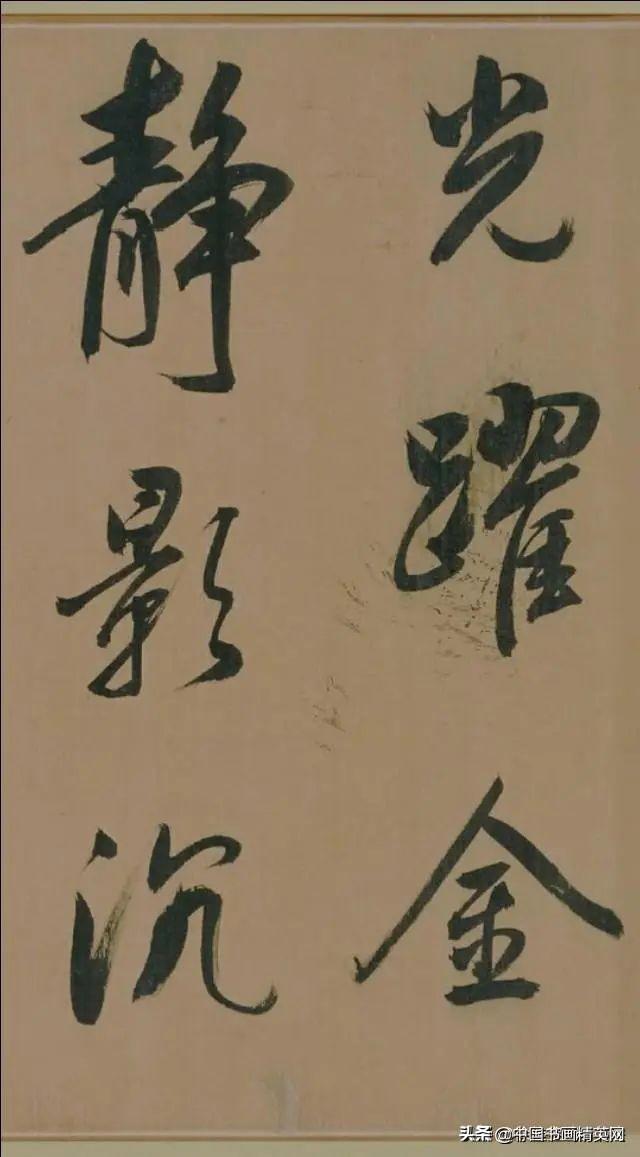 光躍金
静影沉
头条 @中国书画精英网